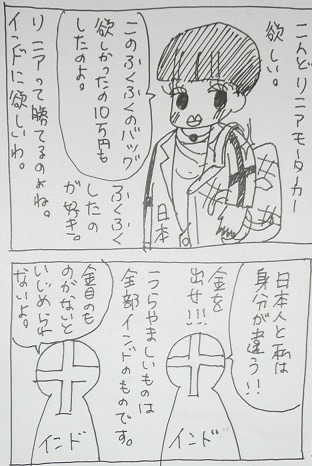 こんどリニアモーターカー
欲しい。
このふくふくのバッグ
欲しかったの10万円も
したのよ。
日本
ふくふく
したの
が好き。
リニアって勝てるのよね。
インドに欲しいわ。
日本人と私は
身分が違う!!
金を
出せ!!!
インド
うらやましいものは
全部インドのものです。
金目のも
のがないと
いじめられ
ないよ。
インド